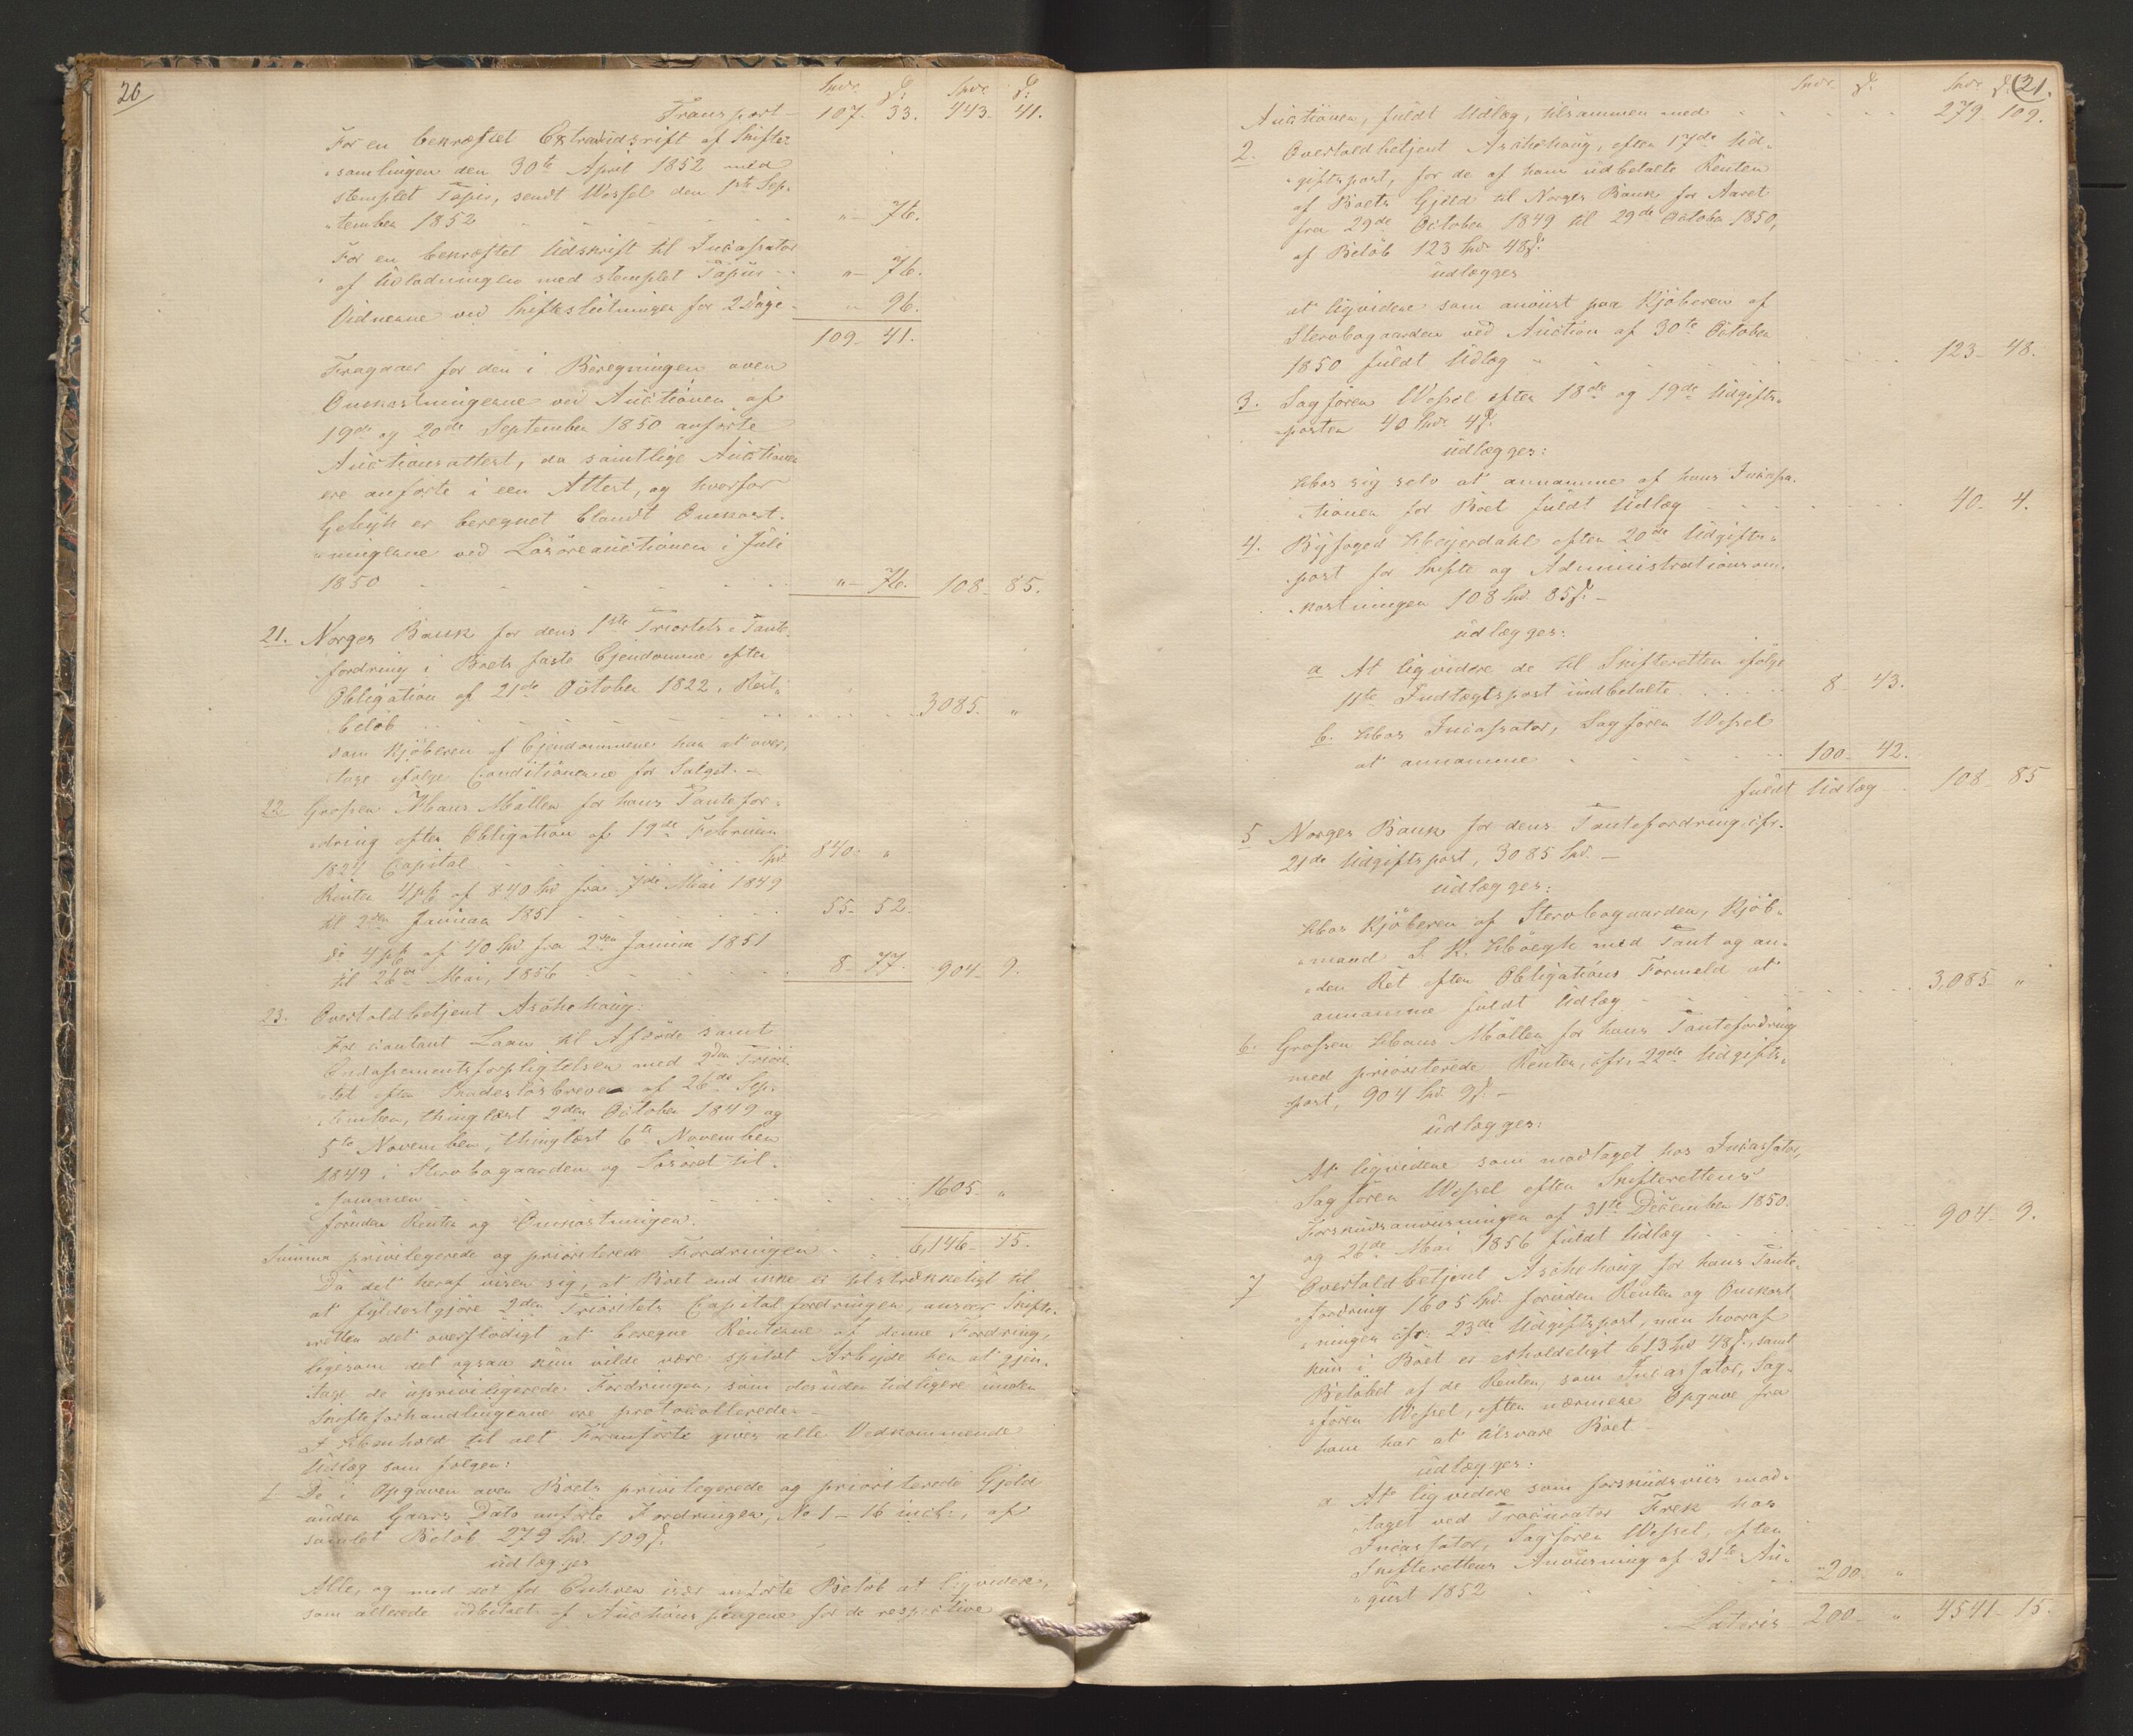 20
Spdr. ß: Spdr. ß:
Transport 107. 33. 443. 41.
For en bekræftet Extraudsrift af Skifte-
samlingen den 30te April 1852 med
stemplet Papir, sendt Wessel den 1ste Sep-
tember 1852 " 76.
For en bekræftet Udskrift til Incassator
af Udlodningen med stemplet Papir " 76.
Vidnerne ved Skifteslutningen for 2 Dage " 96.
109. 41.
Fragaaer for den i Beregningen over
Omkostningerne ved Auctionen af
19de og 20de September 1850 anførte
Auctionsattest, da samtlige Auctioner
ere anførte i een Attest, og hvorfor
Gebyh er beregnet blandt Omkost-
ningerne ved Løsøreauctionen i Juli
1850 " 76. 108. 85.
21. Norges Bank for dens 1ste Prioritets Pante-
fordring i Boets faste Ejendomme efter
Obligation af 21de October 1822, Rest-
beløb 3085. "
som Kjøberen af Ejendommene har at over-
tage ifølge Conditionerne for Salget.
22. Grosser Hans Møller for hans Pantefor-
dring efter Obligation af 19de Februar
1824 Capital Spd. 840. "
Renter 4 pCt. af 840 Spd. fra 7de Mai 1849
til 2den Januar 1851 55. 52.
do 4 pCt. af 40 Spd. fra 2den Januar 1851
til 26de Mai, 1856 8. 77. 904. 9.
23. Overtoldbetjent Aschehoug:
For contant Laan til Afdøde samt
Endossementsforpligtelser med 2den Priori-
tet efter Skadesløsbreve af 26de Sep-
tember, thinglæst 2den October 1849 og
5te November, thinglæst 6te November
1849 i Stervbogaarden og Løsøret til-
sammen 1605. "
foruden Renter og Omkostninger.
Summa privilegerede og prioriterede Fordringer 6,146. 15.
Da det heraf viser sig, at Boet end ikke er tilstrækkeligt til
at fyldestgjøre 2den Prioritets Capitalfordringer, anseer Skifte-
retten det overflødigt at beregne Renterne af denne Fordring,
ligesom det ogsaa kun vilde være spildt Arbejde her at gjen-
tage de upriviligerede Fordringer, som desuden tidligere under
Skifteforhandlingerne ere protocollerede.
I Henhold til alt Foranførte gives alle Vedkommende
Udlæg som følger:
1. De i Opgaven over Boets privilegerede og prioriterede Gjeld
under Gaars Dato anførte Fordringer, No 1 - 16 incl., af
samlet Beløb 279 Spd. 109 ß.
udlægges
Alle, og med det for Enhver især anførte Beløb at liqvidere,
som allerede udbetalt af Auctionspengene for de respective
21.
Spdr. ß. Spdr. ß.
Auctioner, fuldt Udlæg, tilsammen med 279. 109.
2. Overtoldbetjent Aschehoug, efter 17de Ud-
giftspost, for de af ham udbetalte Renter
af Boets Gjeld til Norges Bank for Aaret
fra 29de October 1849 til 29de October 1850,
af Beløb 123 Spd. 48 ß.
udlægges
at liqvidere som anviist paa Kjøberen af
Stervbogaarden ved Auction af 30te October
1850 fuldt Udlæg 123. 48.
3. Sagfører Wessel efter 18de og 19de Udgifts-
poster 40 Spd. 4 ß.
udlægges:
Hos sig selv at annamme af hans Incassa-
tionen for Boet fuldt Udlæg 40. 4.
4. Byfoged Heyerdahl efter 20de Udgifts-
post for Skifte og Administrationsom-
kostninger 108 Spd. 85 ß.
udlægges:
a At liqvidere de til Skifteretten ifølge
11te Indtægtspost indbetalte 8. 43.
b. Hos Incassator, Sagfører Wessel
at annamme 100. 42.
fuldt Udlæg 108. 85
5 Norges Bank for dens Pantefordring, cfr.
21de Udgiftspost, 3085 Spd.
udlægges:
Hos Kjøberen af Stervbogaarden, Kjøb-
mand S. K. Høegh med Pant og an-
den Ret efter Obligations Formeld at
annamme fuldt Udlæg 3,085 "
6. Grosser Hans Møller for hans Pantefordring
med prioriterede Renter, cfr. 22de Udgifts-
post, 904 Spd. 9 ß.
udlægges:
At liqvidere som modtaget hos Incassator,
Sagfører Wessel efter Skifterettens
Forskudsanviisninger af 31te December 1850
og 26de Mai 1856 fuldt Udlæg 904. 9.
7 Overtoldbetjent Aschehoug for hans Pante-
fordring 1605 Spd. foruden Renter og Omkost-
ninger cfr. 23de Udgiftspost, men hvoraf
kun i Boet er erholdeligt 613 Spd 48 ß., samt
Beløbet af de Renter, som Incassator, Sag-
fører Wessel, efter nærmere Opgave fra
ham har at tilsvare Boet.
udlægges:
a At liqvidere som forskudsviis mod-
taget ved Procurator Frek hos
Incassator, Sagfører Wessel, efter
Skifterettens Anviisning af 31te Au-
gust 1852 200. "
Lateris 200. " 4541. 15.